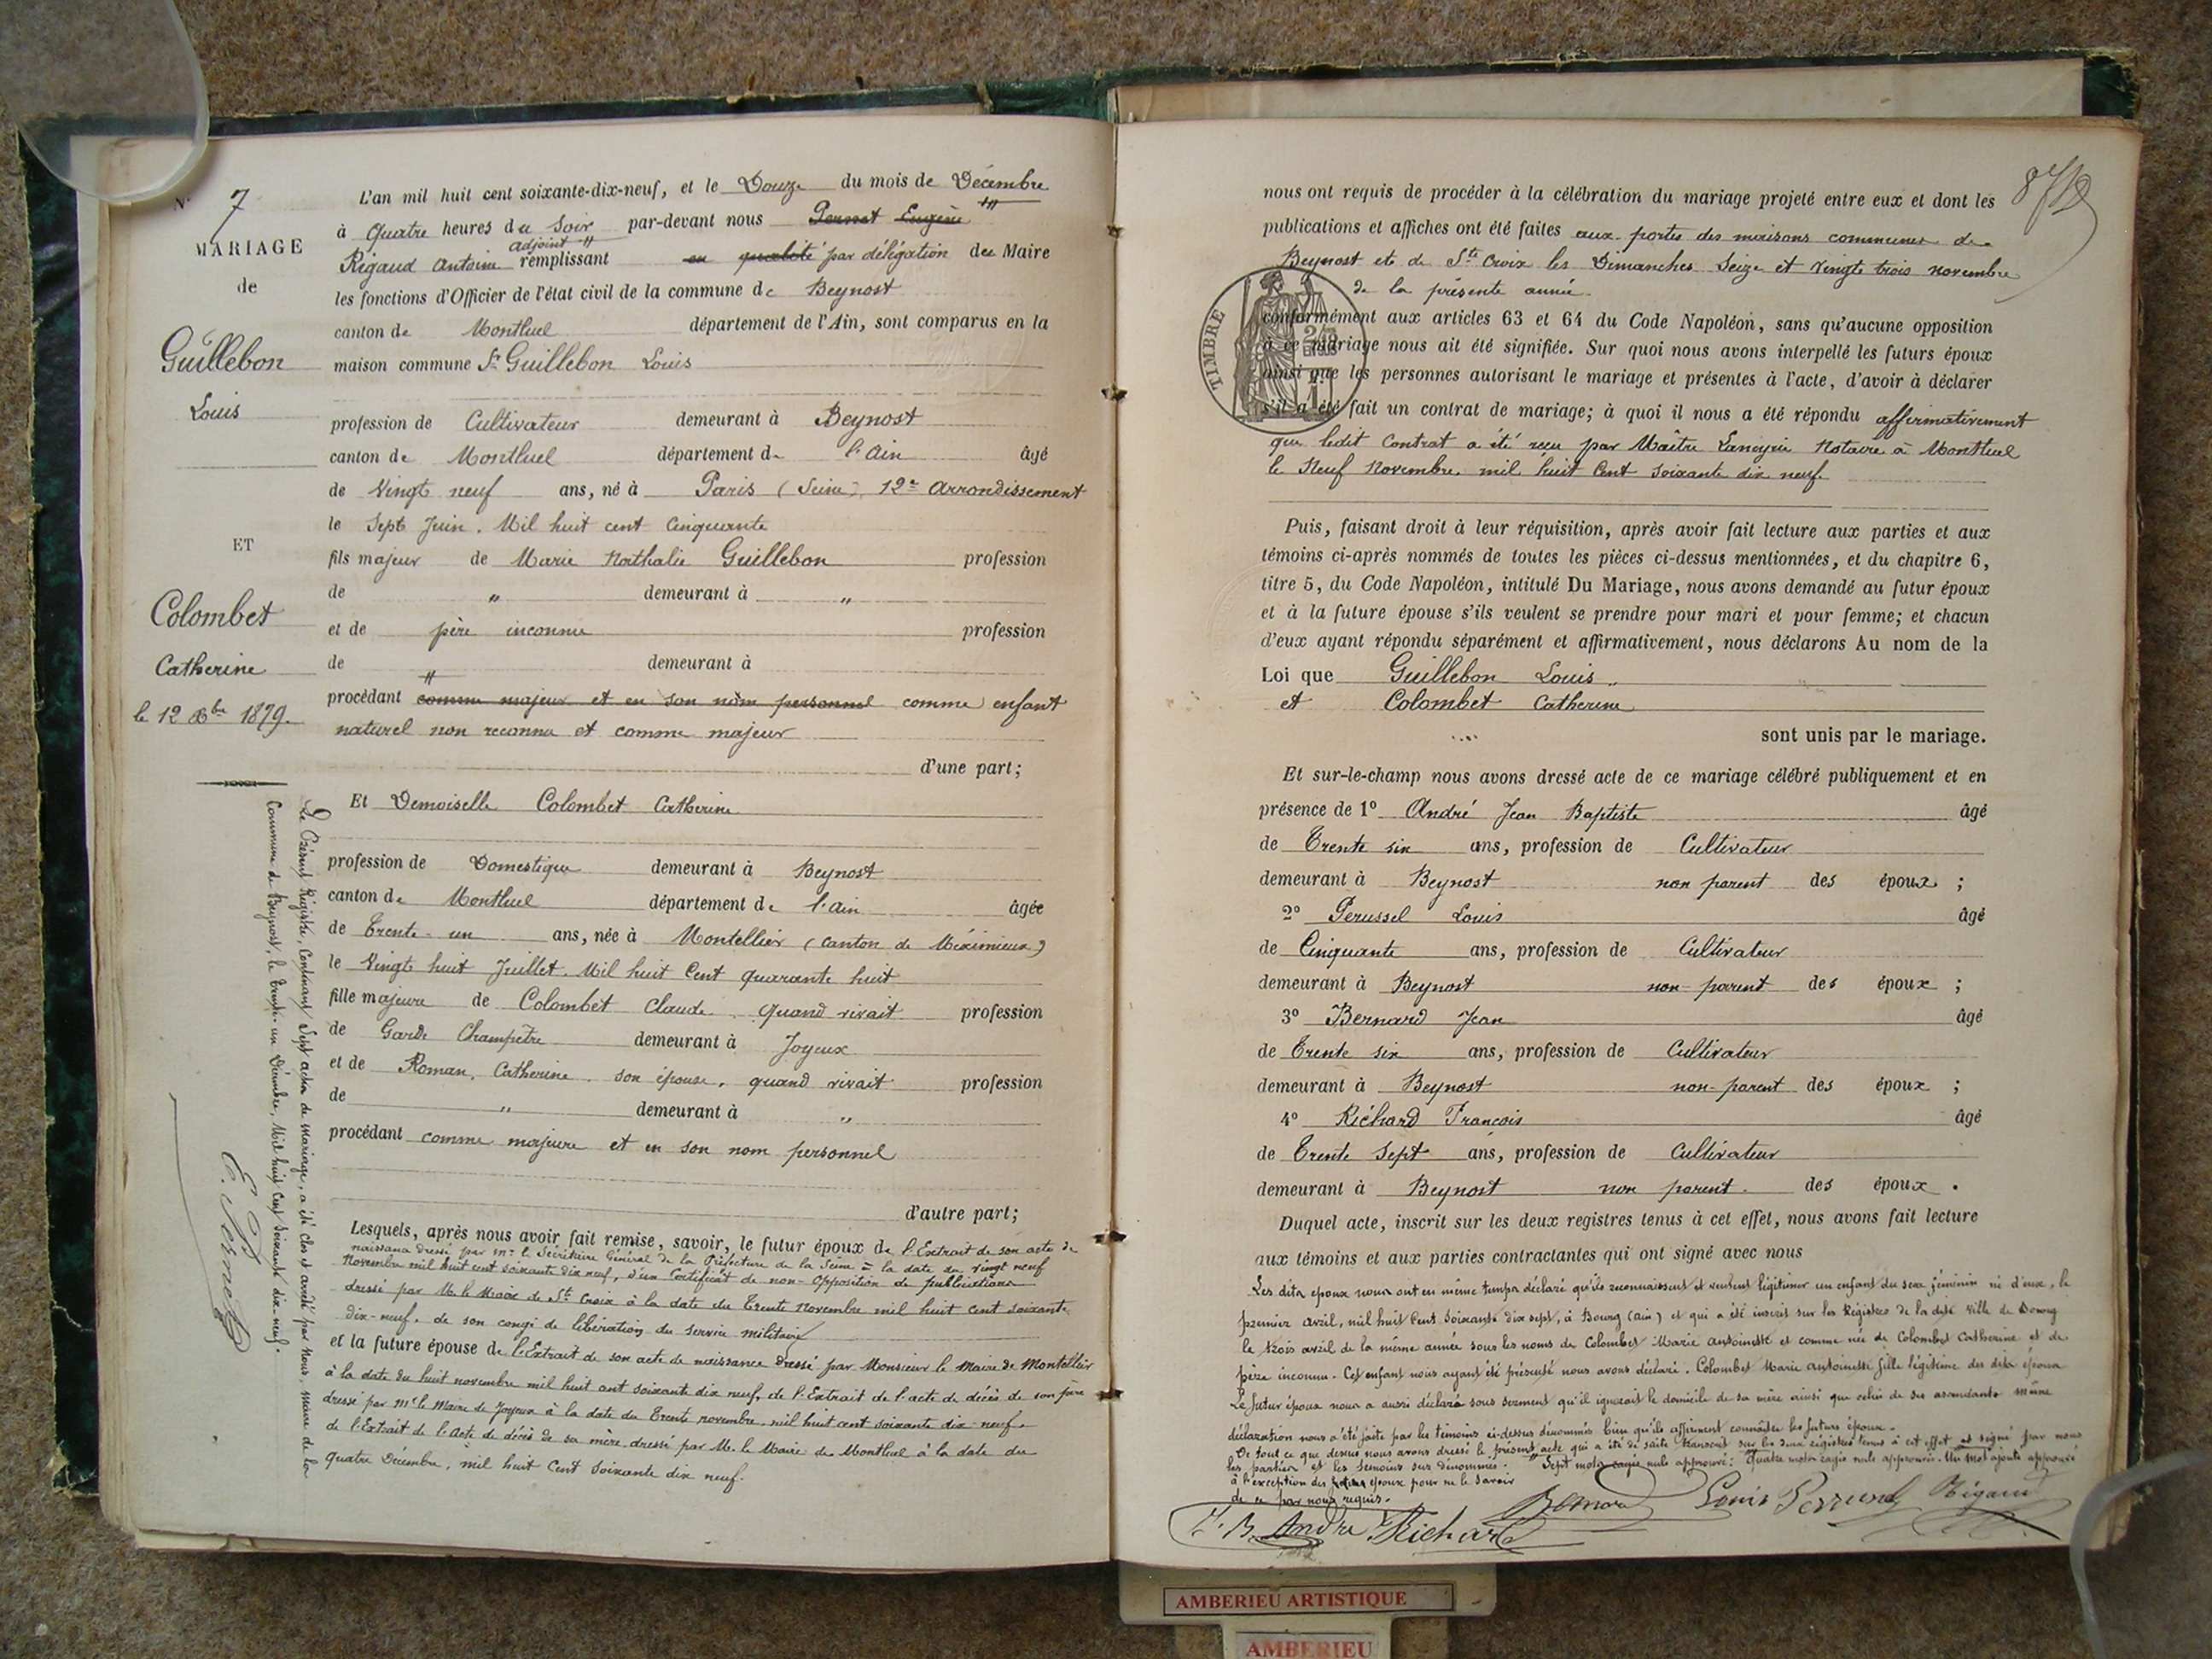 N° 7
MARIAGE
de
Guillebon
Louis
ET
Colombet
Catherine
le 12 Xbre 1879.
Le Présent Registre, Contenant Sept actes de Mariage, a été clos et arrêté par Nous, Maire de la
Commune de Beynost, le trente-un Décembre, Mil huit Cent Soixante dix-neuf.
E. Pernet
L'an mil huit cent soixante-dix-neuf, et le Douze du mois de Décembre
à Quatre heures du Soir par-devant nous Pernet Eugène
Rigaud Antoine adjoint remplissant en qualité par délégation du Maire
les fonctions d'Officier de l'état civil de la commune de Beynost
canton de Montluel département de l'Ain, sont comparus en la
maison commune Sr Guillebon Louis
profession de Cultivateur demeurant à Beynost
canton de Montluel département de l'Ain âgé
de Vingt neuf ans, né à Paris (Seine) 12e Arrondissement
le Sept Juin. Mil huit cent Cinquante
fils majeur de Marie Nathalie Guillebon profession
de " demeurant à "
et de père inconnu profession
de " demeurant à
procédant comme majeur et en son nom personnel comme enfant
naturel non reconnu et comme majeur
d'une part;
Et Demoiselle Colombet Catherine
profession de Domestique demeurant à Beynost
canton de Montluel département de l'ain âgée
de Trente-un ans, née à Montellier (canton de Méximieux)
le Vingt huit Juillet. Mil huit Cent quarante huit
fille majeure de Colombet Claude. Quand vivait profession
de Garde Champêtre demeurant à Joyeux
et de Roman, Catherine. son épouse, quand vivait profession
de " demeurant à "
procédant comme majeure et en son nom personnel
d'autre part;
Lesquels, après nous avoir fait remise, savoir, le futur époux de l'Extrait de son acte de
naissance dressé par Mr le Secrétaire Général de la Préfecture de la Seine à la date du vingt neuf
Novembre mil huit cent soixante dix neuf, d'un Certificat de non-opposition de publications
dressé par M. le Maire de Ste Croix à la date du Trente Novembre mil huit cent soixante
dix-neuf, de son congé de libération du service militaire
et la future épouse de l'Extrait de son acte de naissance dressé par Monsieur le Maire de Montellier
à la date du huit novembre mil huit cent soixante dix neuf, de l'Extrait de l'acte de décès de son père
dressé par Mr le Maire de Joyeux à la date du Trente novembre, mil huit cent soixante dix-neuf.
de l'Extrait de l'acte de décès de sa mère dressé par M. le Maire de Montluel à la date du
quatre Décembre, mil huit Cent soixante dix neuf.
nous ont requis de procéder à la célébration du mariage projeté entre eux et dont les
publications et affiches ont été faites aux portes des maisons communes de
Beynost et de Ste Croix les Dimanches Seize et Vingt trois novembre
de la présente année.
TIMBRE
conformément aux articles 63 et 64 du Code Napoléon, sans qu'aucune opposition
à ce mariage nous ait été signifiée. Sur quoi nous avons interpellé les futurs époux
ainsi que les personnes autorisant le mariage et présentes à l'acte, d'avoir à déclarer
s'il a été fait un contrat de mariage; à quoi il nous a été répondu affirmativement
que ledit Contrat a été reçu par Maître Notaire à Montluel
le Neuf Novembre mil huit Cent Soixante dix neuf.
Puis, faisant droit à leur réquisition, après avoir fait lecture aux parties et aux
témoins ci-après nommés de toutes les pièces ci-dessus mentionnées, et du chapitre 6,
titre 5, du Code Napoléon, intitulé Du Mariage, nous avons demandé au futur époux
et à la future épouse s'ils veulent se prendre pour mari et pour femme; et chacun
d'eux ayant répondu séparément et affirmativement, nous déclarons Au nom de la
Loi que Guillebon Louis
et Colombet Catherine
sont unis par le mariage.
Et sur-le-champ nous avons dressé acte de ce mariage célébré publiquement et en
présence de 1° André Jean Baptiste âgé
de Trente six ans, profession de Cultivateur
demeurant à Beynost non parent des époux ;
2° Perussel Louis âgé
de Cinquante ans, profession de Cultivateur
demeurant à Beynost non-parent des époux ;
3° Bernard Jean âgé
de Trente six ans, profession de Cultivateur
demeurant à Beynost non-parent des époux ;
4° Richard François âgé
de Trente Sept ans, profession de Cultivateur
demeurant à Beynost non parent. des époux .
Duquel acte, inscrit sur les deux registres tenus à cet effet, nous avons fait lecture
aux témoins et aux parties contractantes qui ont signé avec nous
Les dits époux nous ont en même temps déclaré qu'ils reconnaissent et veulent légitimer un enfant du sexe féminin né d'eux, le
premier avril, mil huit Cent Soixante dix sept, à Bourg (ain) et qui a été inscrit sur les Registres de la dite Ville de Bourg
le trois avril de la même année sous les noms de Colombet Marie Antoinette et comme née de Colombet Catherine et de
père inconnu. Cet enfant nous ayant été présenté nous avons déclaré. Colombet Marie Antoinette fille légitime des dits époux
Le futur époux nous a aussi déclaré sous serment qu'il ignorait le domicile de sa mère ainsi que celui de ses ascendants même
déclaration nous a été faite par les témoins ci-dessus dénommés bien qu'ils affirment connaître les futurs époux.
De tout ce que dessus nous avons dressé le présent acte qui a été de suite transcrit sur les deux régistres tenus à cet effet et signé par nous
les parties et les témoins sus dénommés. Sept mots rayés nuls approuvé: Quatre mots rayés nuls approuvés. Un mot ajouté approuvé
à l'exception des époux pour ne le savoir
de ce par nous requis.
J. B. André Richard Bernard Louis Perrusel Rigaud
AMBERIEU ARTISTIQUE
AMBERIEU